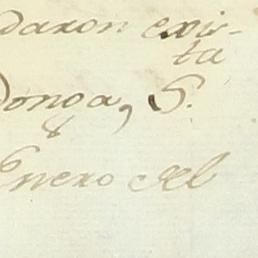 daron exis-
ta
Donga, S.
Enero del